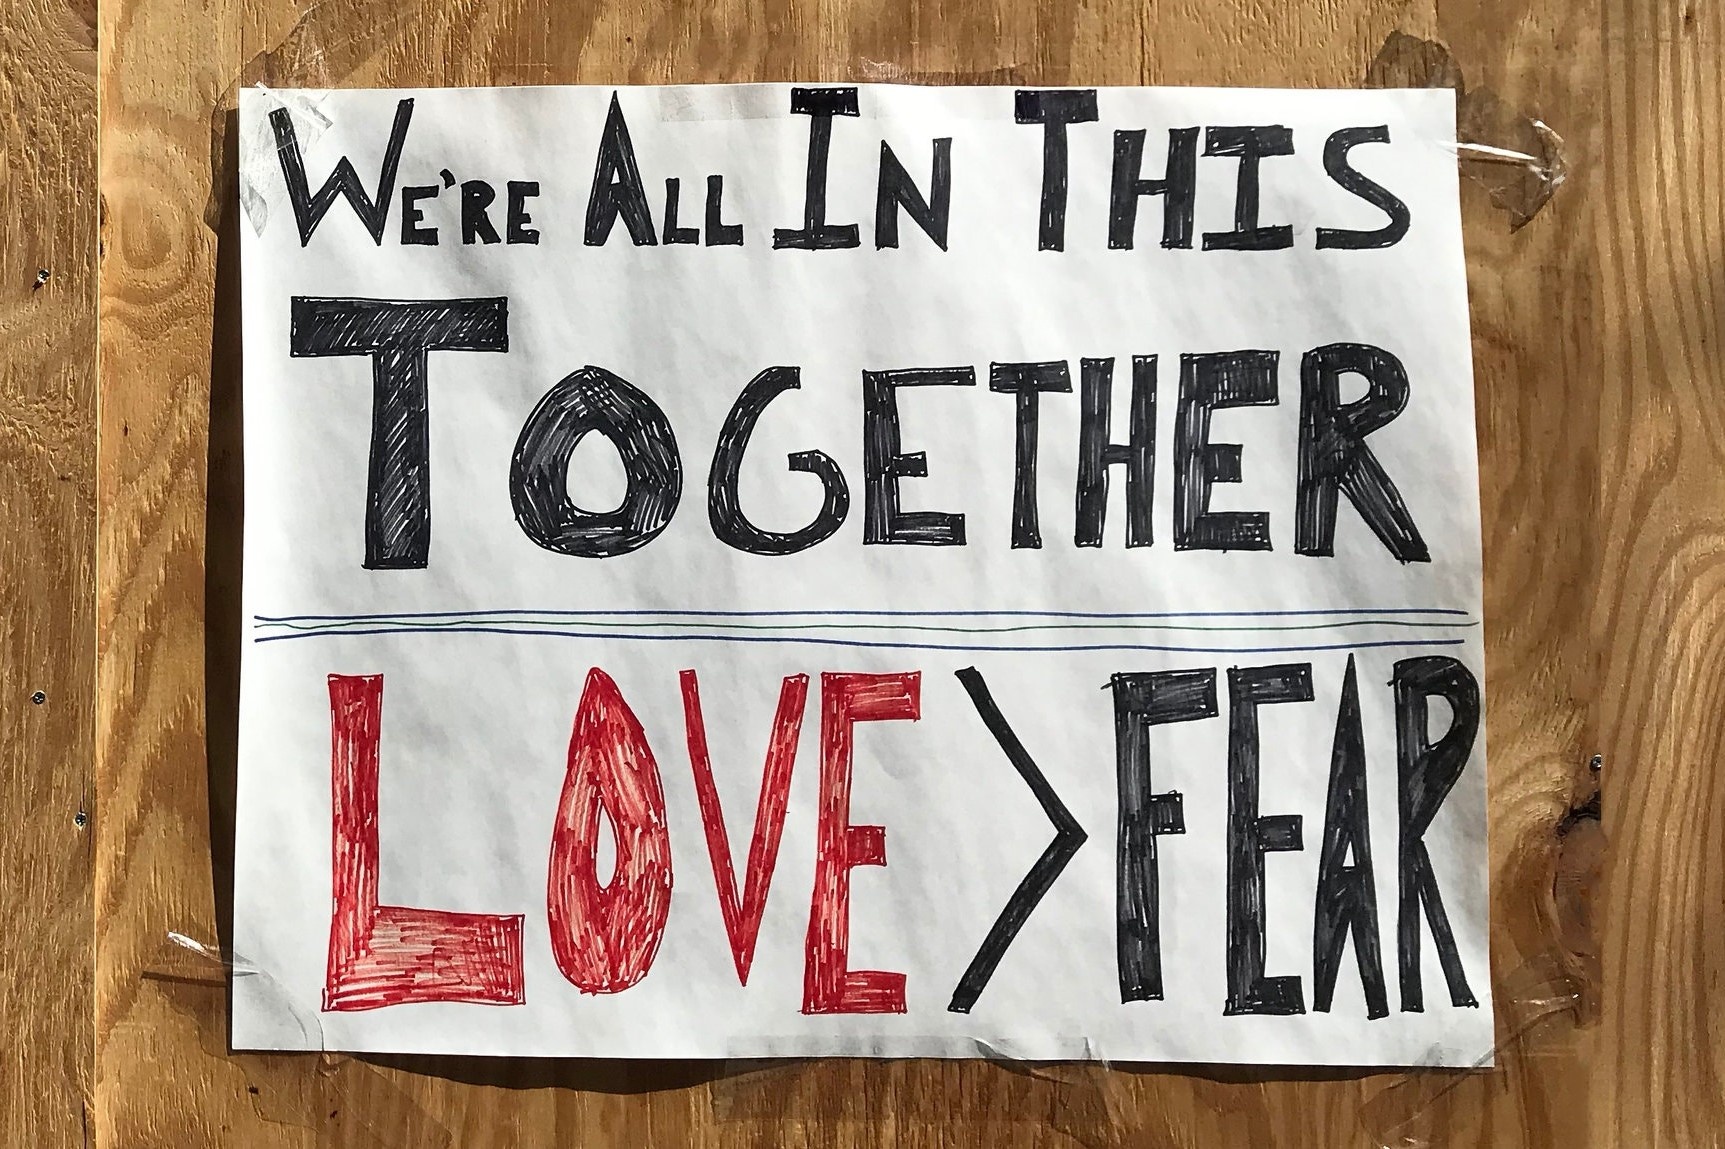 We're All In This
Together
LOVE > FEAR